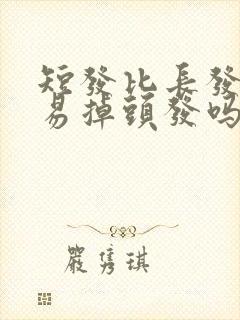 短發比長發
易掉頭發嗎
嚴雋琪